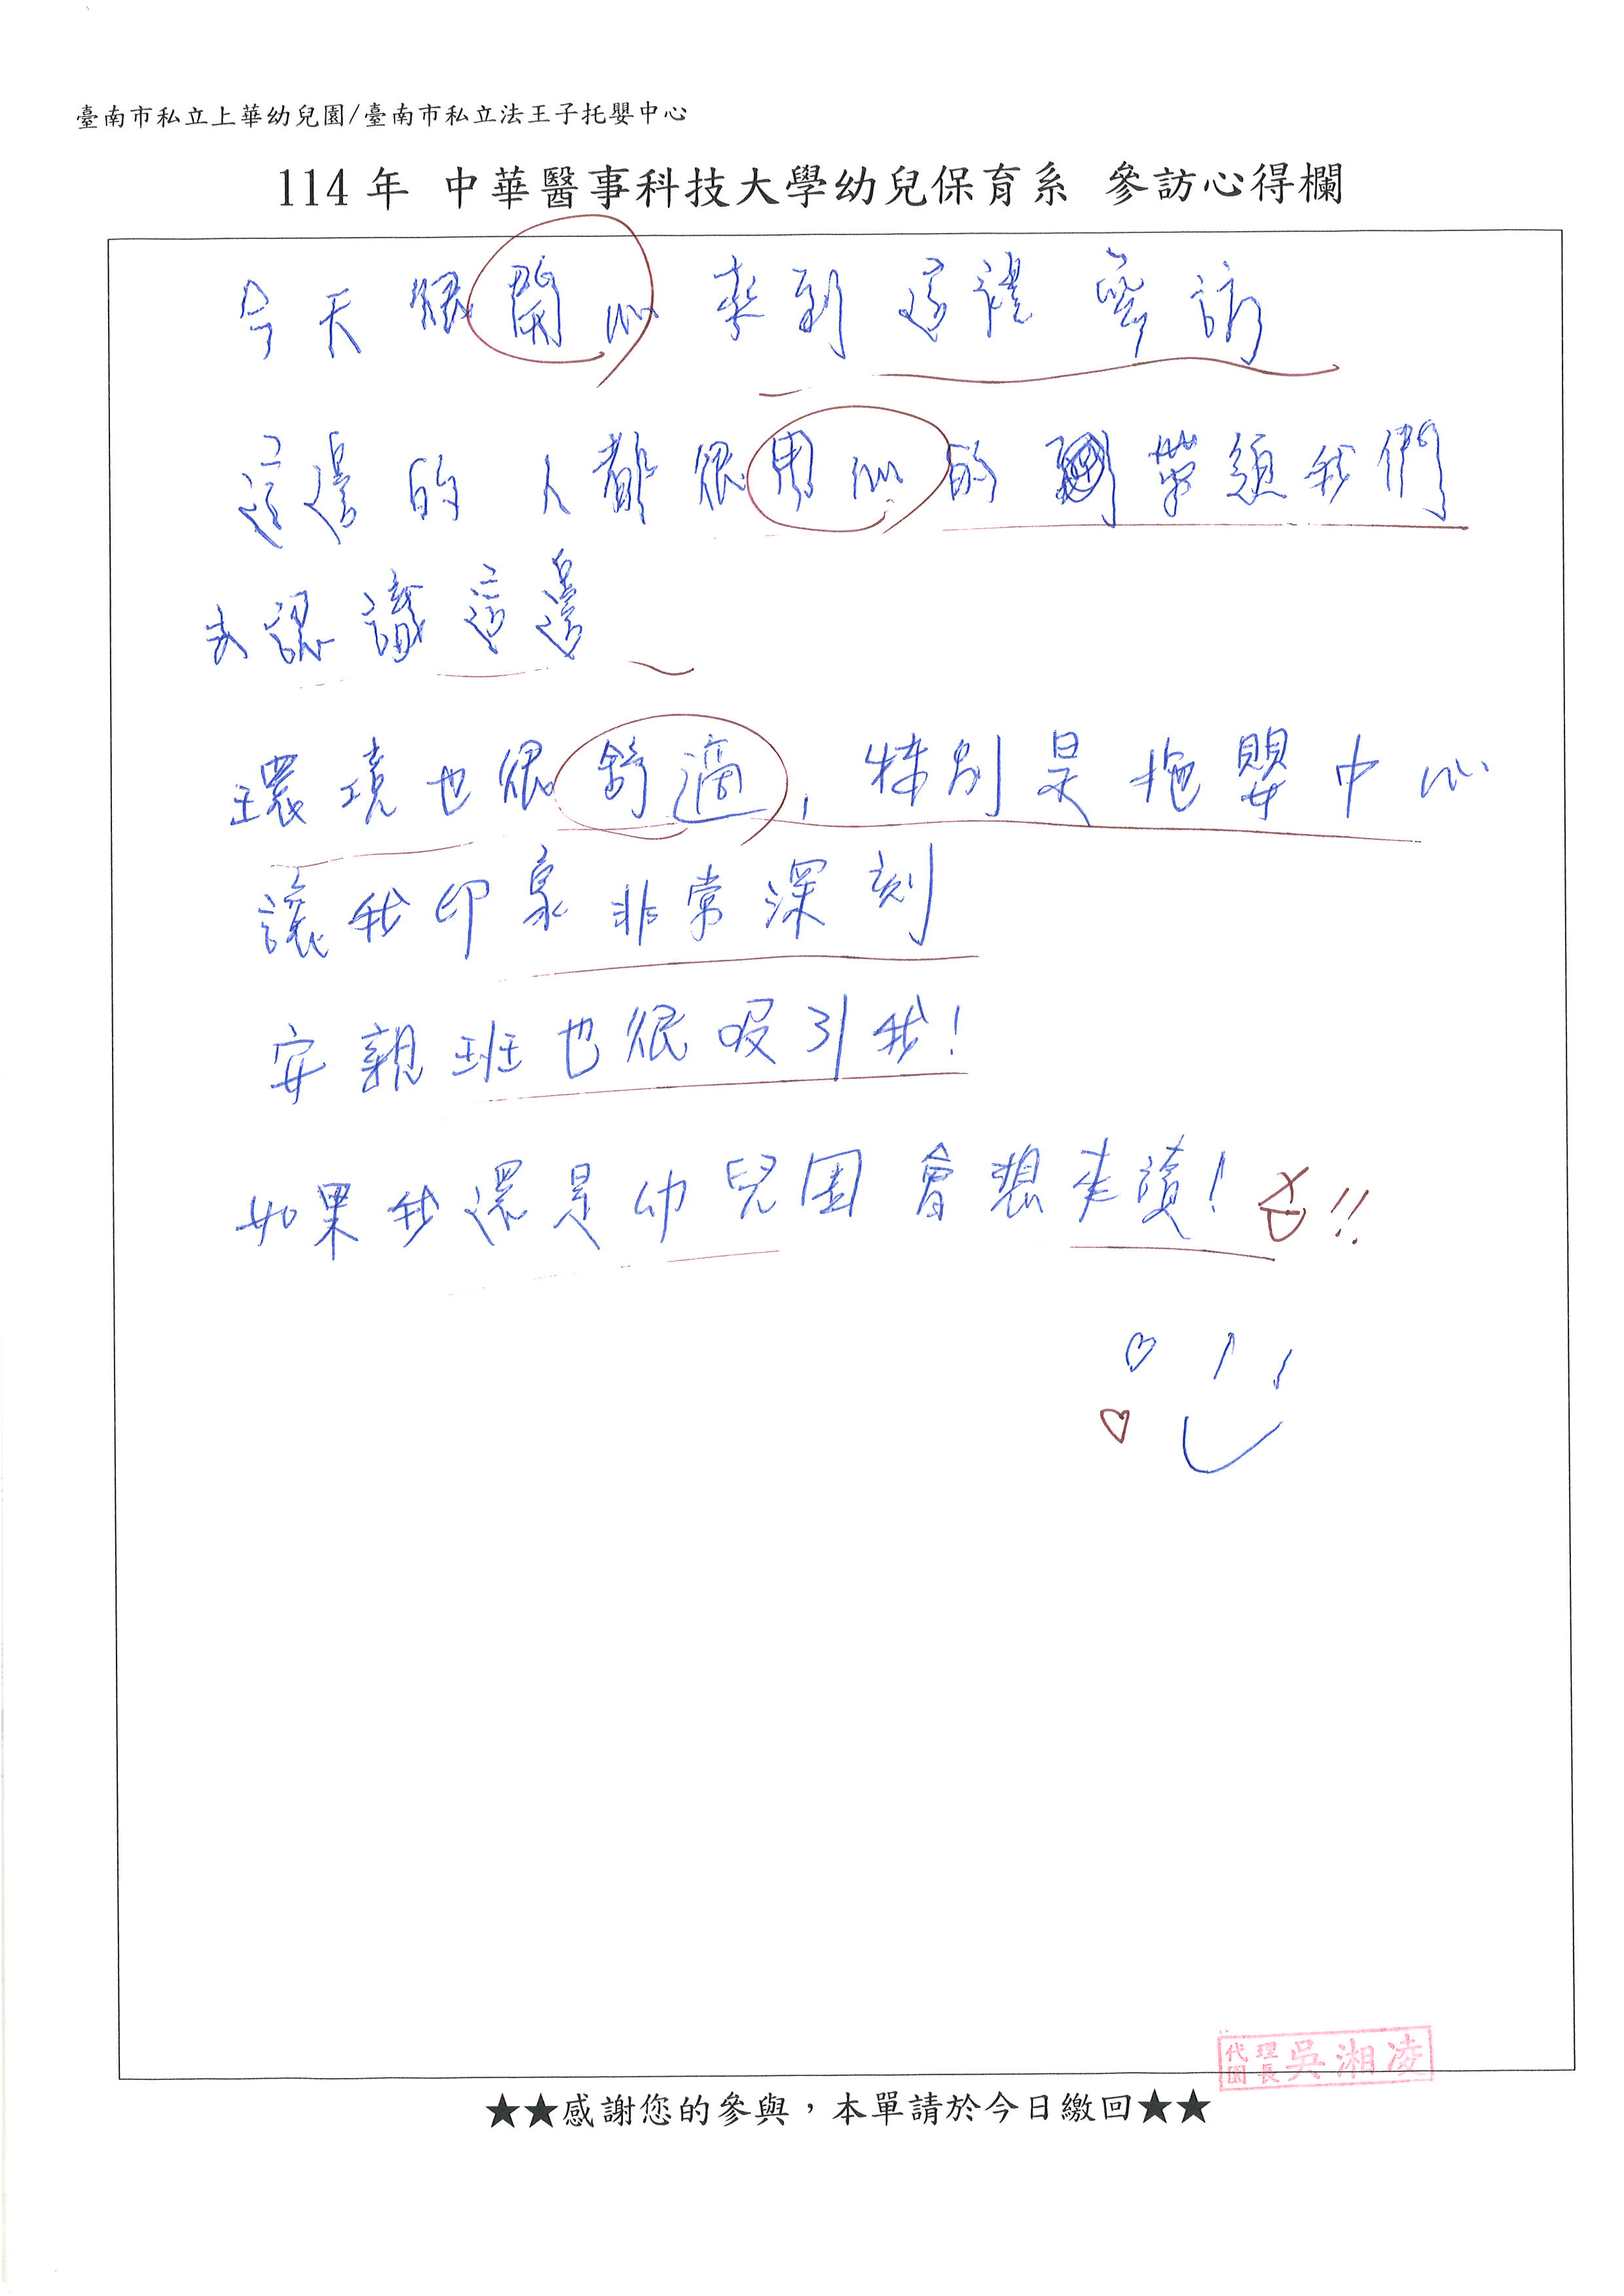 臺南市私立上華幼兒園/臺南市私立法王子托嬰中心
114年 中華醫事科技大學幼兒保育系 參訪心得欄
今天很開心來到這裡參訪
這邊的人都很用心的帶領我們
去認識這邊
環境也很舒適,特別是拖嬰中心
讓我印象非常深刻
安親班也很吸引我!
如果我還是幼兒園會想來讀!!!
代理園長 吳湘凌
★★感謝您的參與,本單請於今日繳回★★